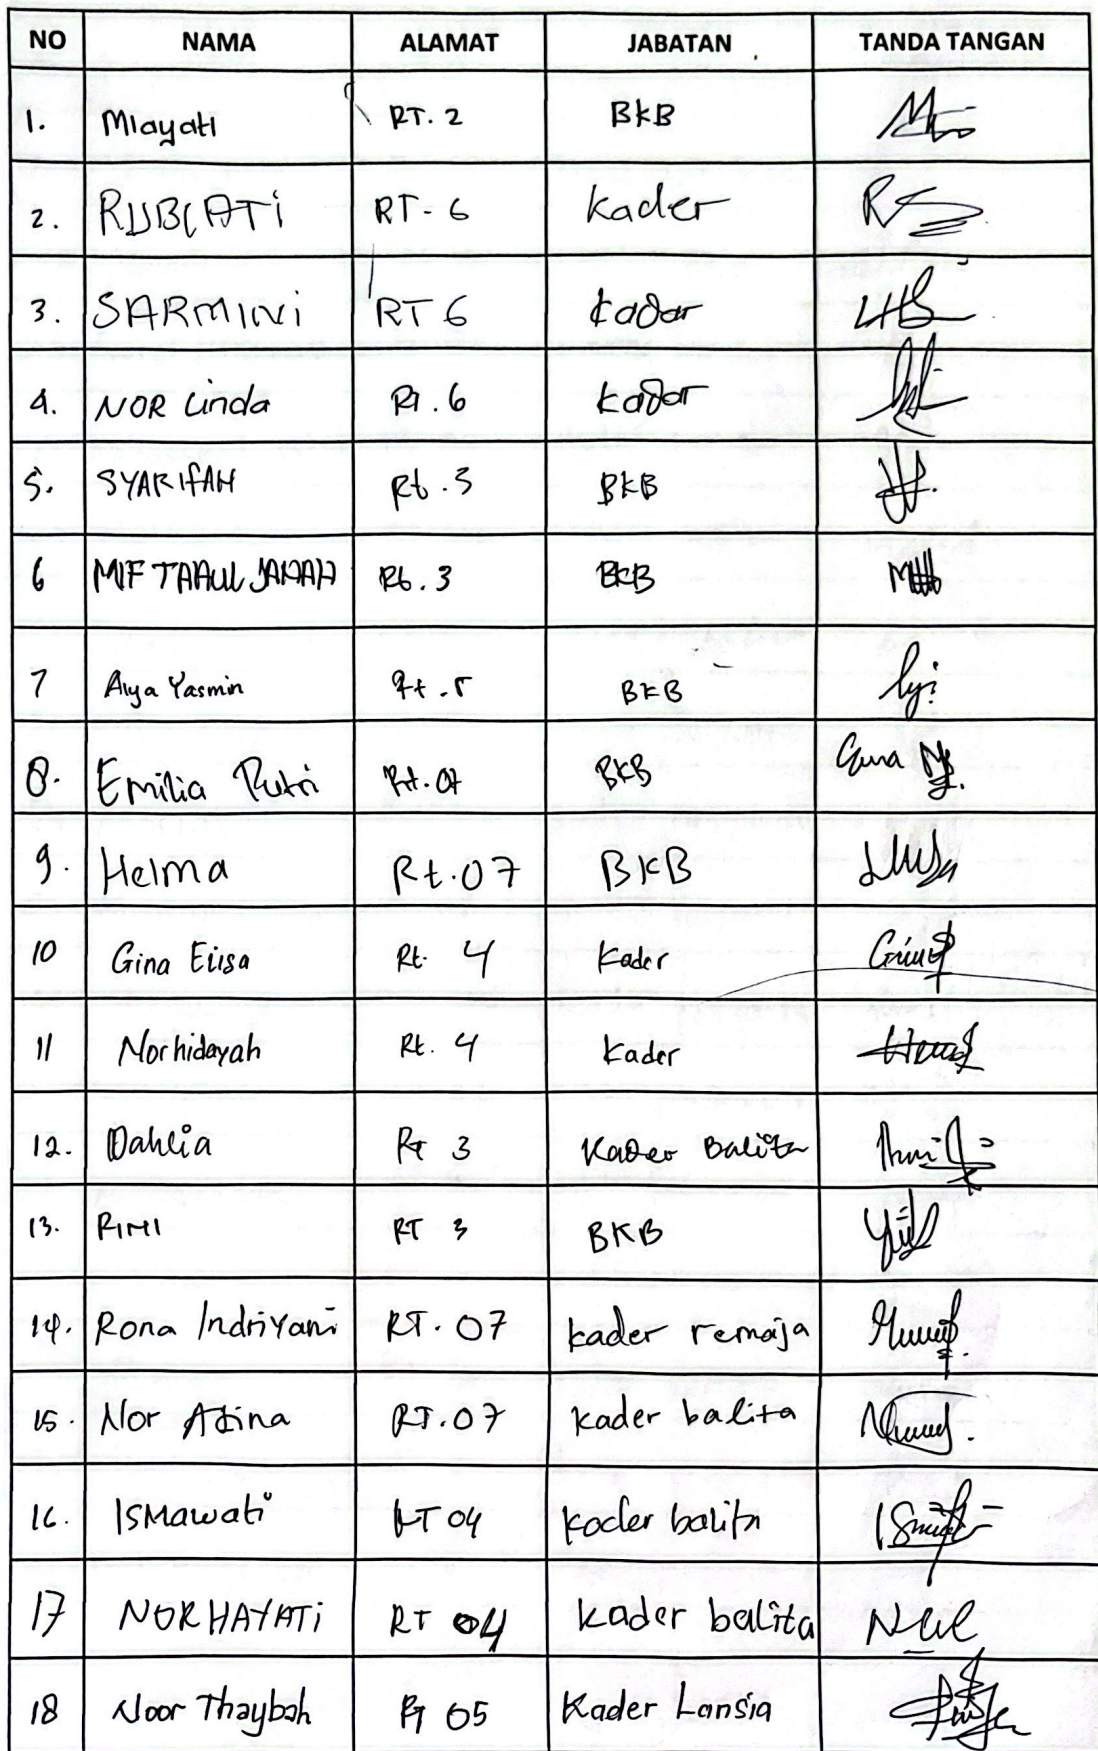 NO NAMA ALAMAT JABATAN TANDA TANGAN
1. Miayati RT. 2 BKB
2. RUBIATI RT-6 Kader
3. SARMINI RT 6 Kadar
4. NOR Linda Rt.6 Kadar
5. SYARIFAH Rt.3 BKB
6 MIFTAHUL JANAH Rt.3 BKB
7 Yasmin Rt.5 BKB
8. Emilia Putri Rt.07 BKB
9. Helma Rt.07 BKB
10 Gina Elisa Rt. 4 Kader
11 Norhidayah Rt. 4 Kader
12. Dahlia Rt 3 Kader Balita
13. RT 3 BKB
14. Rona Indriyani RT.07 kader remaja
15. Nor RT.07 kader balita
16. ISMawati RT 04 kader balita
17 NORHAYATi RT 04 kader balita
18 Noor Thaybah Rt 05 Kader Lansia